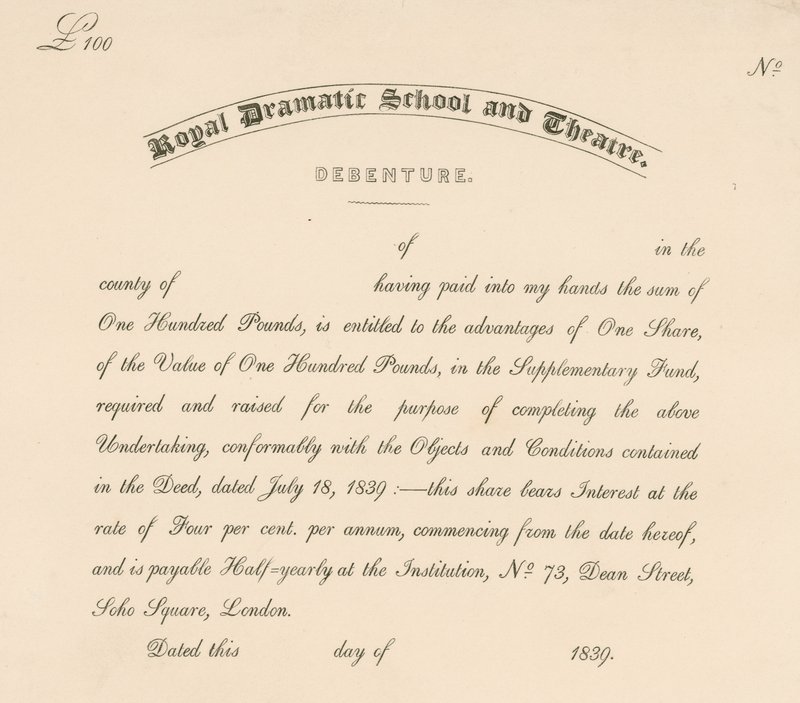 £100
No
Royal Dramatic School and Theatre.
DEBENTURE.
of in the
county of having paid into my hands the sum of
One Hundred Pounds, is entitled to the advantages of One Share,
of the Value of One Hundred Pounds, in the Supplementary Fund,
required and raised for the purpose of completing the above
Undertaking, conformably with the Objects and Conditions contained
in the Deed, dated July 18, 1839 :—this share bears Interest at the
rate of Four per cent. per annum, commencing from the date hereof,
and is payable Half=yearly at the Institution, No 73, Dean Street,
Soho Square, London.
Dated this day of 1839.